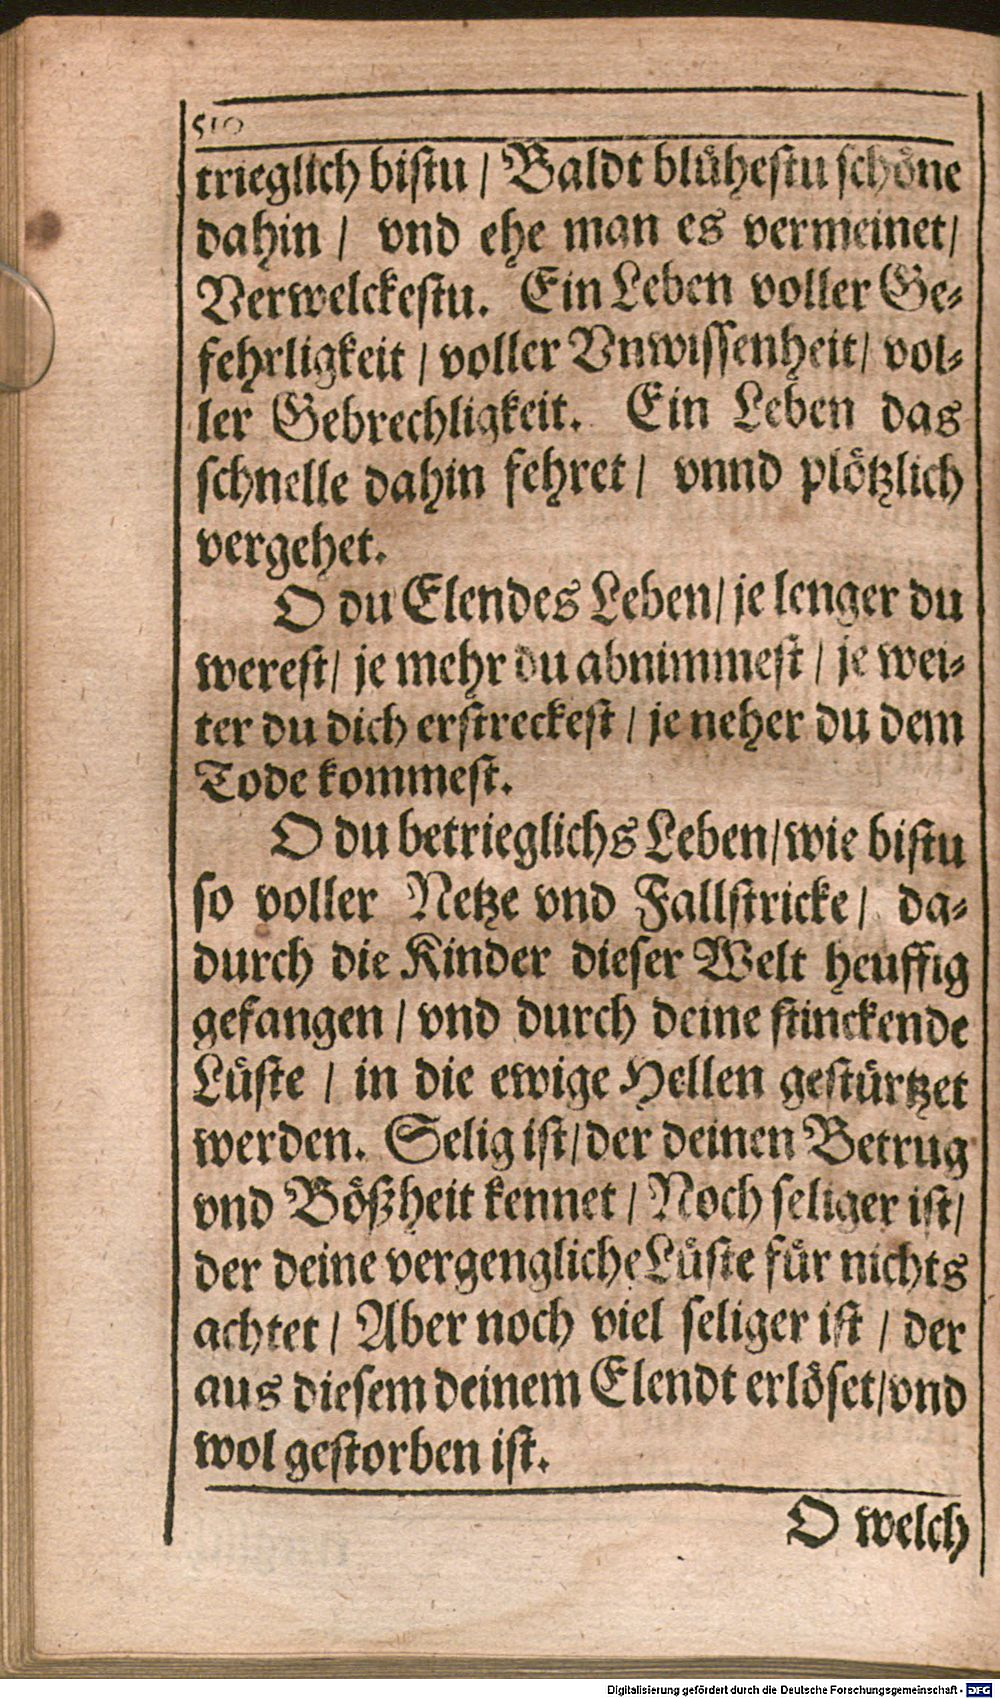 510
trieglich bistu / Baldt blühestu schöne
dahin / vnd ehe man es vermeinet /
Verwelckestu. Ein Leben voller Ge-
fehrligkeit / voller Vnwissenheit / vol-
ler Gebrechligkeit. Ein Leben das
schnelle dahin fehret / vnnd plötzlich
vergehet.
O du Elendes Leben / je lenger du
werest / je mehr du abnimmest / je wei-
ter du dich erstreckest / je neher du dem
Tode kommest.
O du betrieglichs Leben / wie bistu
so voller Netze vnd Fallstricke / da-
durch die Kinder dieser Welt heuffig
gefangen / vnd durch deine stinckende
Lüste / in die ewige Hellen gestürtzet
werden. Selig ist / der deinen Betrug
vnd Bößheit kennet / Noch seliger ist /
der deine vergengliche Lüste für nichts
achtet / Aber noch viel seliger ist / der
aus diesem deinem Elendt erlöset / vnd
wol gestorben ist.
O welch
Digitalisierung gefördert durch die Deutsche Forschungsgemeinschaft - DFG